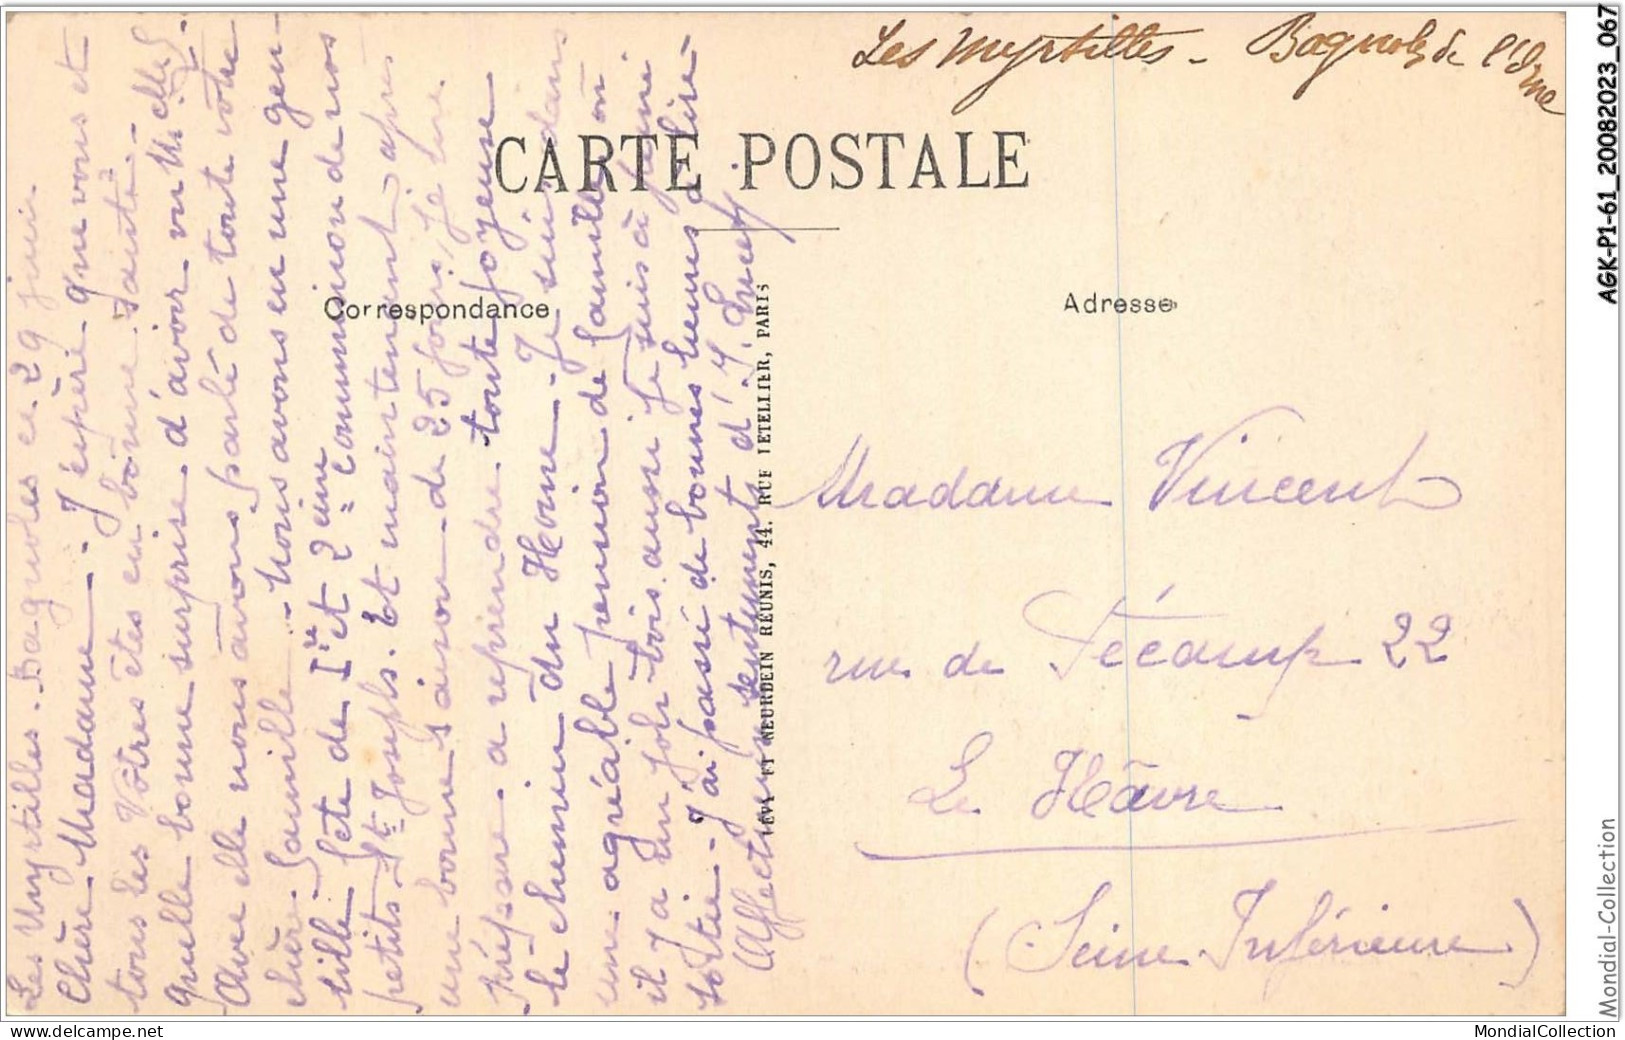 Les Myrtilles - Bagnoles de l'Orne
CARTE POSTALE
Correspondance
Adresse
Les Myrtilles. Bagnoles ce 29 juin.
Chère Madame. J'espère que vous et
tous les Vôtres êtes en bonne santé. -
Quelle bonne surprise d'avoir vu M.elle
Avec elle nous avons parlé de toute votre
chère famille. Nous avons eu une gen-
tille fête de 1re et 2eme communion de nos
petits St Josephs. Et maintenant après
une bonne saison de 25 jours, je
a reprendre toute joyeuse
le chemin du Hâvre. Je suis dans
une agréable pension de famille où
il y a un joli bois aussi je suis à
sortie. J'ai passé de bonnes heures
Affectueux sentiments d'
LÉVY ET NEURDEIN RÉUNIS, 44. RUE LETELLIER, PARIS
Madame Vincent
rue de Fécamp 22
Le Hâvre
(Seine Inférieure)
AGK-P1-61_20082023_067
Mondial-Collection
delcampe.net
MondialCollection